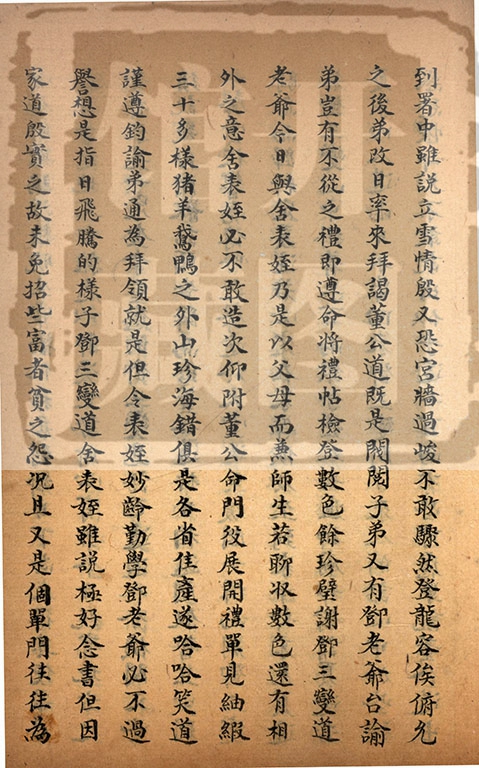 到署中雖說立雪情殷又恐宮牆過峻不敢驟然登龍容俟俯允
之後弟改日率來拜謁董公道既是閥閱子弟又有鄧老爺台諭
弟豈有不從之禮即遵命將禮帖檢登數色餘珍璧謝鄧三變道
老爺今日與舍表姪乃是以父母而兼師生若聊收數色還有相
外之意舍表姪必不敢造次仰附董公命門役展開禮單見紬緞
三十多樣猪羊鵝鴨之外山珍海錯俱是各省佳產遂哈哈笑道
謹遵鈞諭弟通為拜領就是但令表姪妙齡勤學鄧老爺必不過
譽想是指日飛騰的樣子鄧三變道舍表姪雖說極好念書但因
家道殷實之故未免招些富者貧之怨况且又是個單門往往為